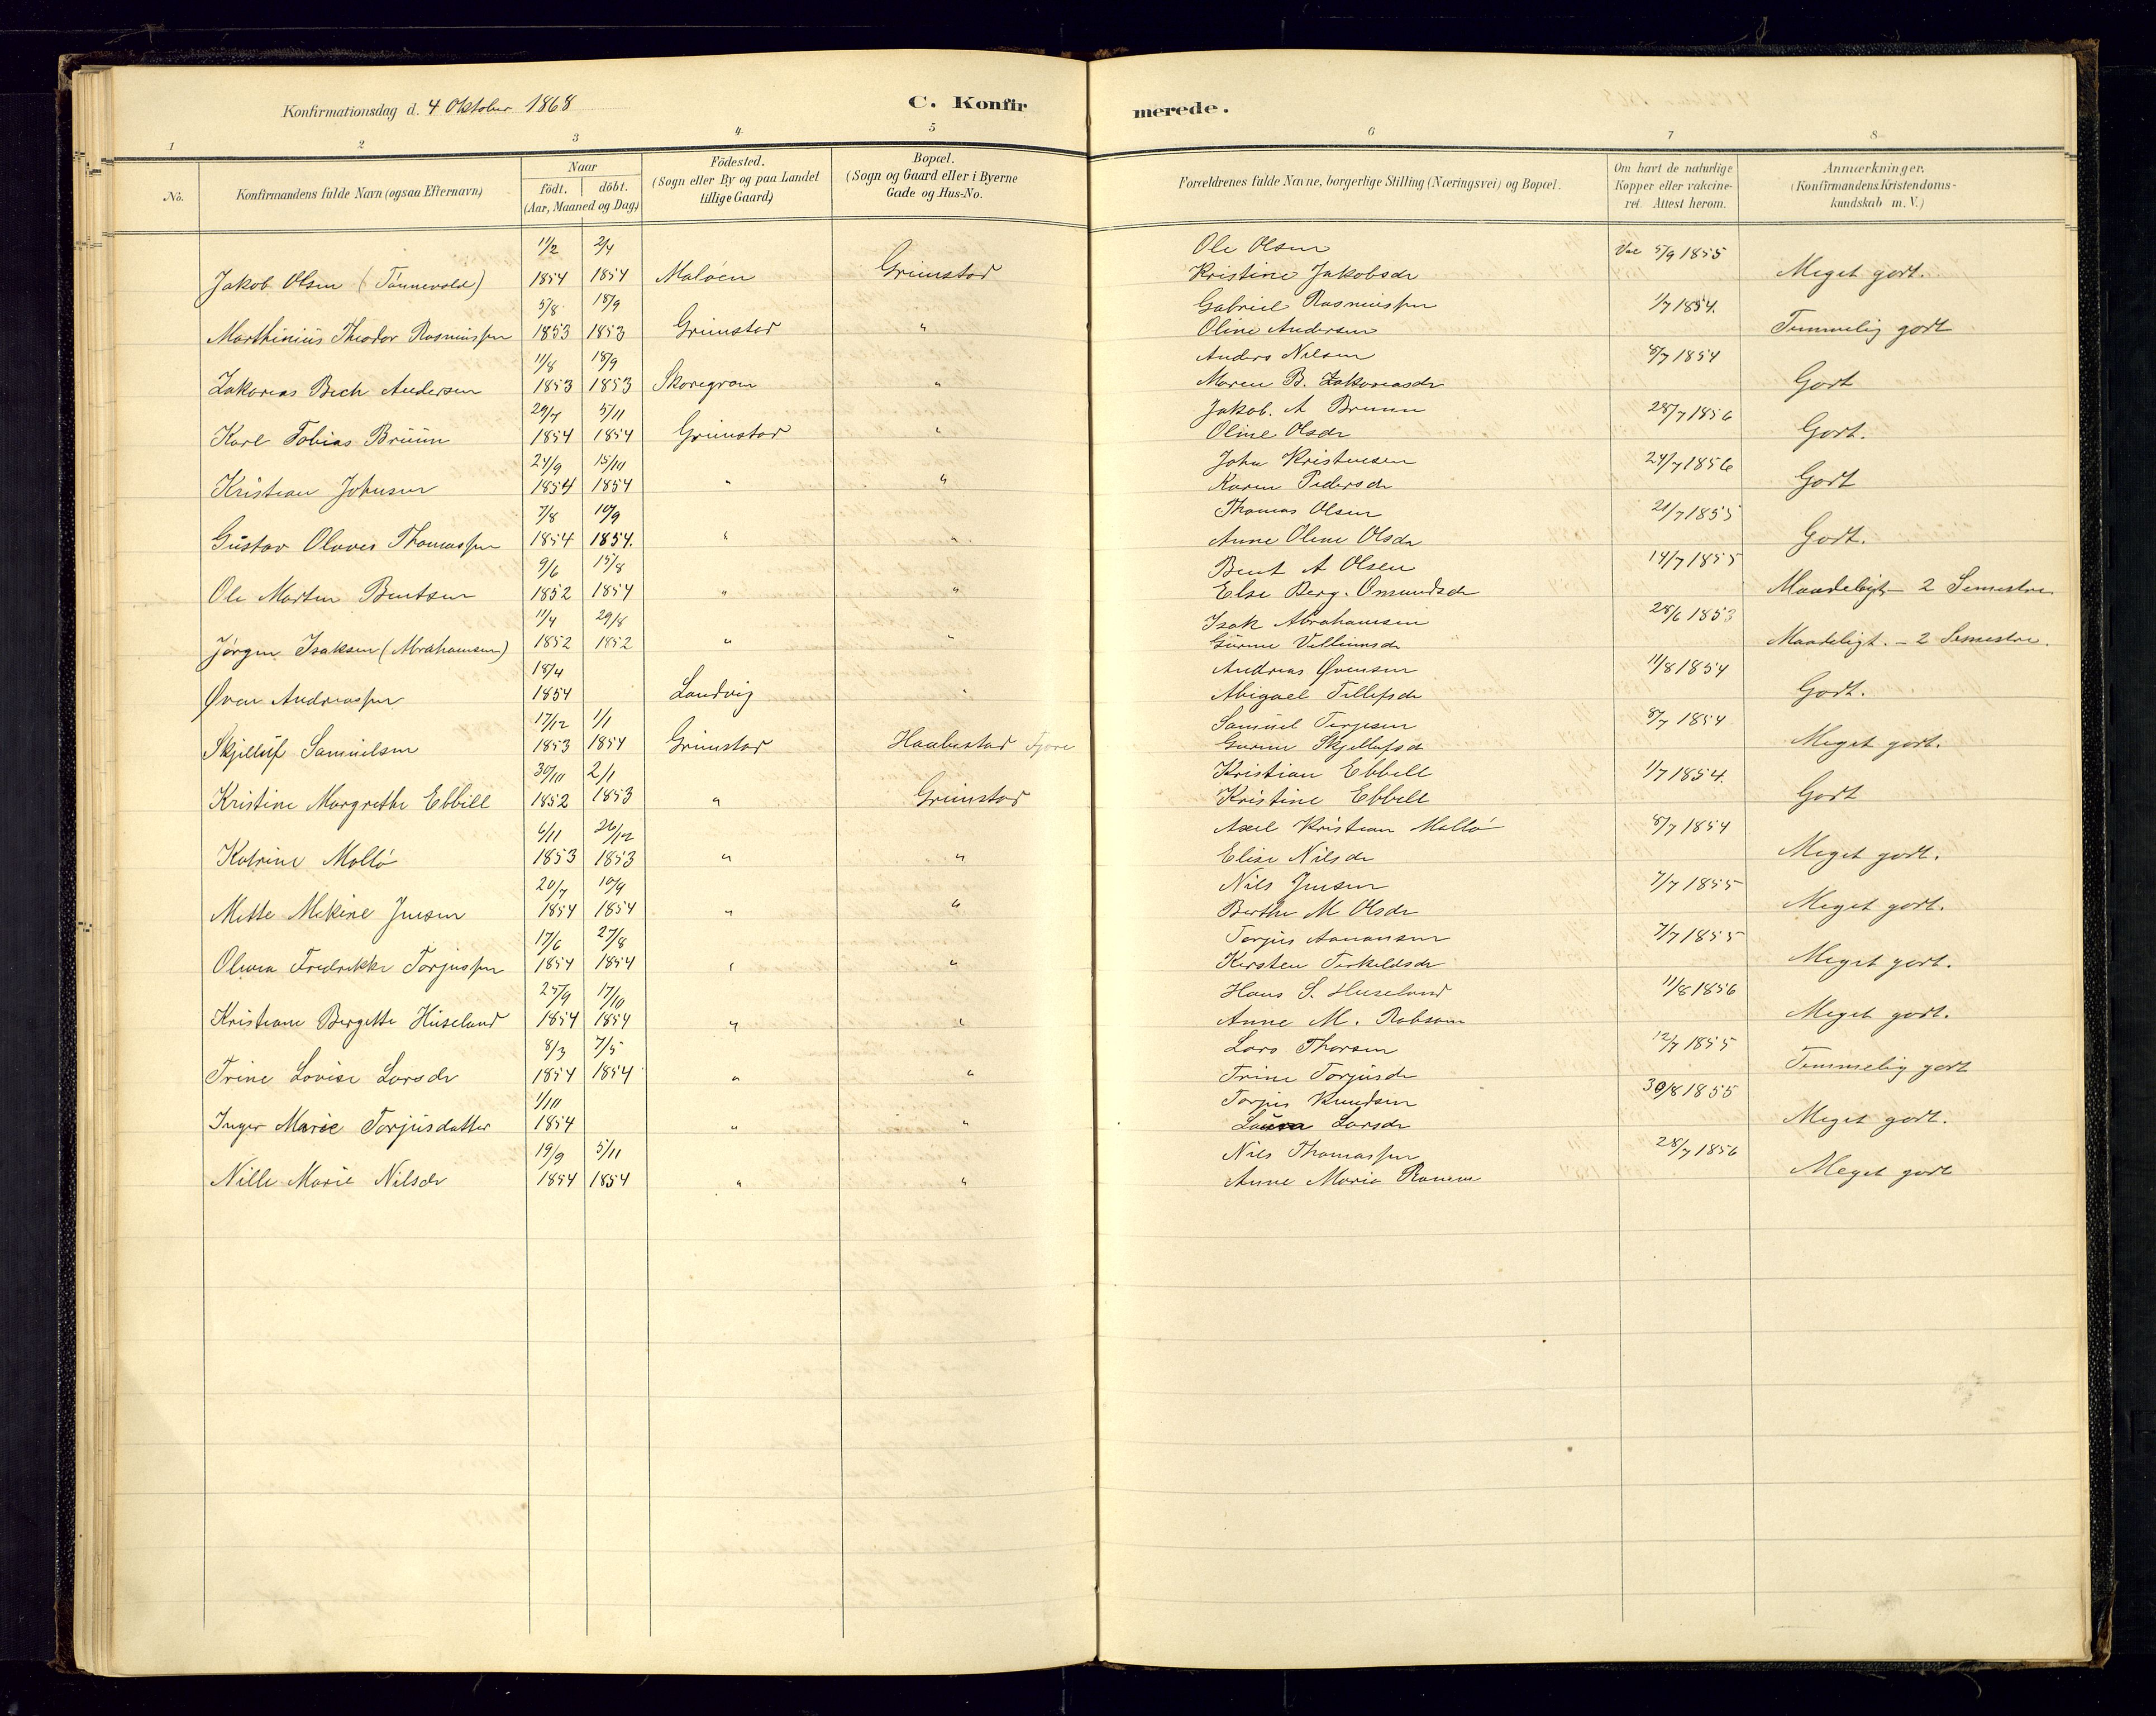 Konfirmationsdag d. 4 Oktober 1868
C. Konfirmerede.
1 2 3 4 5 6 7 8
No.
Konfirmandens fulde Navn (ogsaa Efternavn)
Naar
födt. döbt.
(Aar, Maaned og Dag)
Födested.
(Sogn eller By og paa Landet
tillige Gaard)
Bopæl.
(Sogn og Gaard eller i Byerne
Gade og Hus-No.
Forældrenes fulde Navne, borgerlige Stilling (Næringsvei) og Bopæl.
Om havt de naturlige
Kopper eller vakcine-
ret. Attest herom.
Anmærkninger.
(Konfirmandens Kristendoms-
kundskab m. V.)
11/2 2/4 Ole Olsen Vac 5/9 1855
Jakob Olsen (Tönnevold) 1854 1854 Malöen Grimstad Kristine Jakobsdr Meget godt.
5/8 18/9 Gabriel Rasmussen 1/7 1854.
Marthinius Theodor Rasmussen 1853 1853 Grimstad " Oline Andersen Temmelig godt
11/8 18/9 Anders Nilsen 8/7 1854
Zakarias Bech Andersen 1853 1853 " Maren B. Zakariasdr Godt
29/7 5/11 Jakob. A Bruun 28/7 1856
Karl Tobias Brüün 1854 1854 Grimstad " Oline Olsdr Godt.
24/9 15/10 John Kristensen 24/7 1856
Kristian Johnsen 1854 1854 " " Karen Pedersdr Godt
7/8 10/9 Thomas Olsen 21/7 1855
Gustav Olaves Thomassen 1854 1854. " " Anne Oline Olsdr Godt.
9/6 15/8 Bent A Olsen 14/7 1855
Ole Martin Bentsen 1852 1854 " " Else Berg. Omundsdr Maadeligt - 2 Semestre
11/4 29/8 Isak Abrahamsen 28/6 1853
Jörgen Isaksen (Abrahamsen) 1852 1852 " " Gurine Villumsdr Maadeligt. - 2 Semestre.
18/4 Andreas Øvensen 11/8 1854
Øven Andreassen 1854 Landvig " Abigael Tellefsdr Godt.
17/12 1/1 Samuel Terjesen 8/7 1854
Skjelluf Samuelsen 1853 1854 Grimstad Haabestad Fjære Gurine Skjellufsdr Meget godt.
30/10 2/1 Kristian Ebbell 1/7 1854.
Kristine Margrethe Ebbell 1852 1853 " Grimstad Kristine Ebbell Godt
6/11 26/12 Axel Kristian Mollö 8/7 1854
Katrine Mollö 1853 1853 " " Elise Nilsdr Meget godt.
20/7 10/9 Nils Jensen 7/7 1855
Mette Mekine Jensen 1854 1854 " " Berthe M Olsdr Meget godt.
17/6 27/8 Torjus Aanonsen 7/7 1855
Olivia Fredrikke Torjussen 1854 1854 " " Kirsten Terkeldsdr Meget godt.
25/9 17/10 Hans S. Huseland 11/8 1856
Kristiane Bergette Hüseland 1854 1854 " " Anne M. Robsam Meget godt.
8/3 7/5 Lars Thorsen 12/7 1855
Trine Lovise Larsdr 1854 1854 " " Trine Torjusdr Temmelig godt
1/10 Torjus Knudsen 30/8 1855
Inger Marie Torjusdatter 1854 " " Laura Larsdr Meget godt.
19/9 5/11 Nils Thomassen 28/7 1856
Nille Marie Nilsdr 1854 1854 " " Anne Marie Meget godt